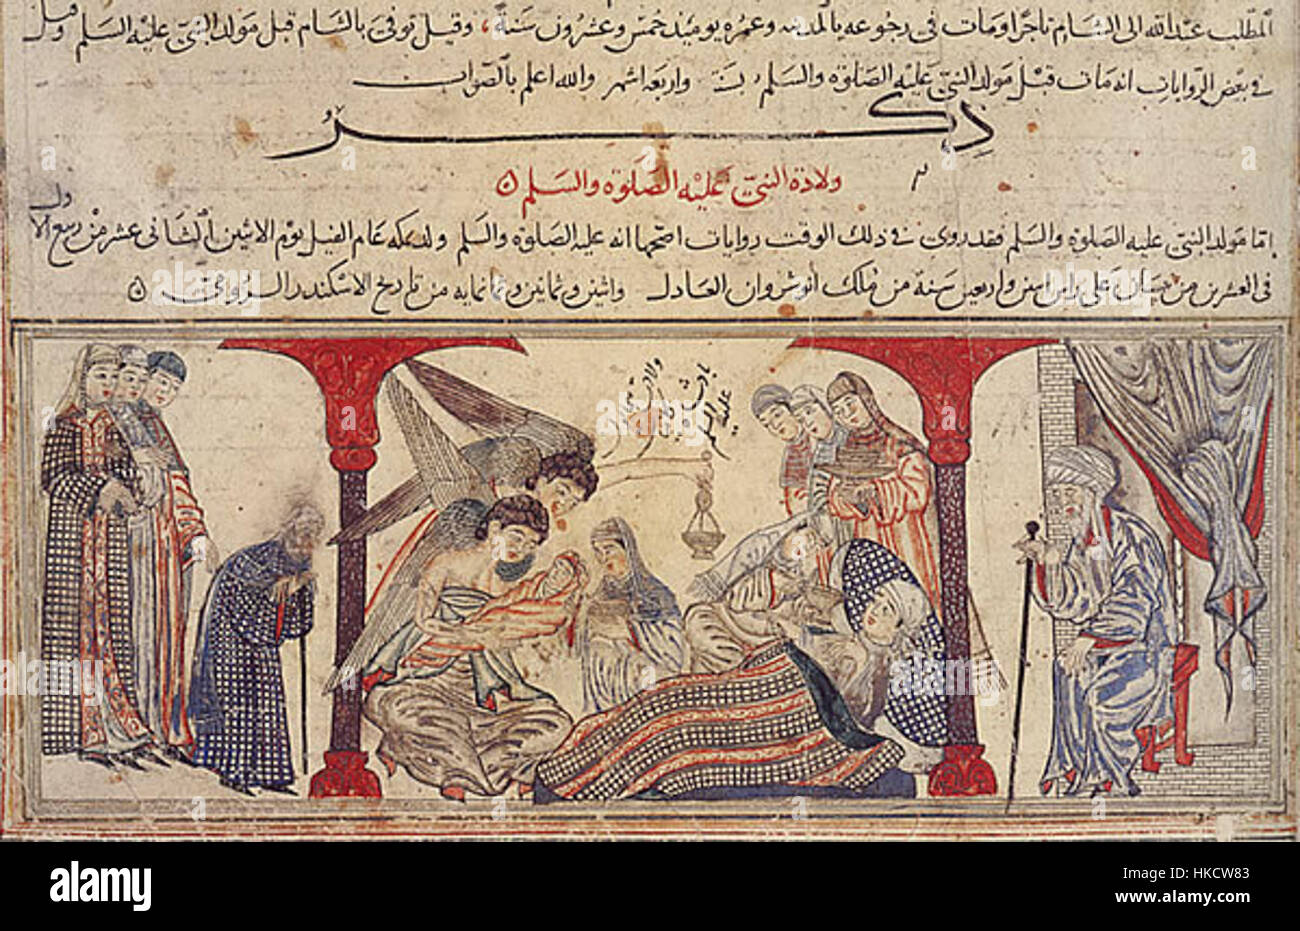 المطلب عبد الله الى الشام تاجرا ومات فى رجوعه بالمدينه وعمره يوميذ خمس وعشرون سنة، وقيل توفى بالشام قبل مولد النبى عليه السلم وقيل
فى بعض الروايات انه مات قبل مولد النبى عليه الصلوة والسلم بسنة واربعة اشهر والله اعلم بالصواب
ذكر
ولادة النبى عليه الصلوة والسلم
اما مولد النبى عليه الصلوة والسلم فقد روى فى ذلك الوقت روايات اصحها انه عليه الصلوة والسلم ولد بمكه عام الفيل يوم الاثنين الثانى عشر من ربيع الاول
فى العشرين من نيسان على راس اثنين واربعين سنة من ملك أنوشروان العادل واثنين وثمانين وثمانمايه من تاريخ الاسكندر الرومى
ولادت
عليه السلم
alamy
alamy
Image ID: HKCW83
www.alamy.com